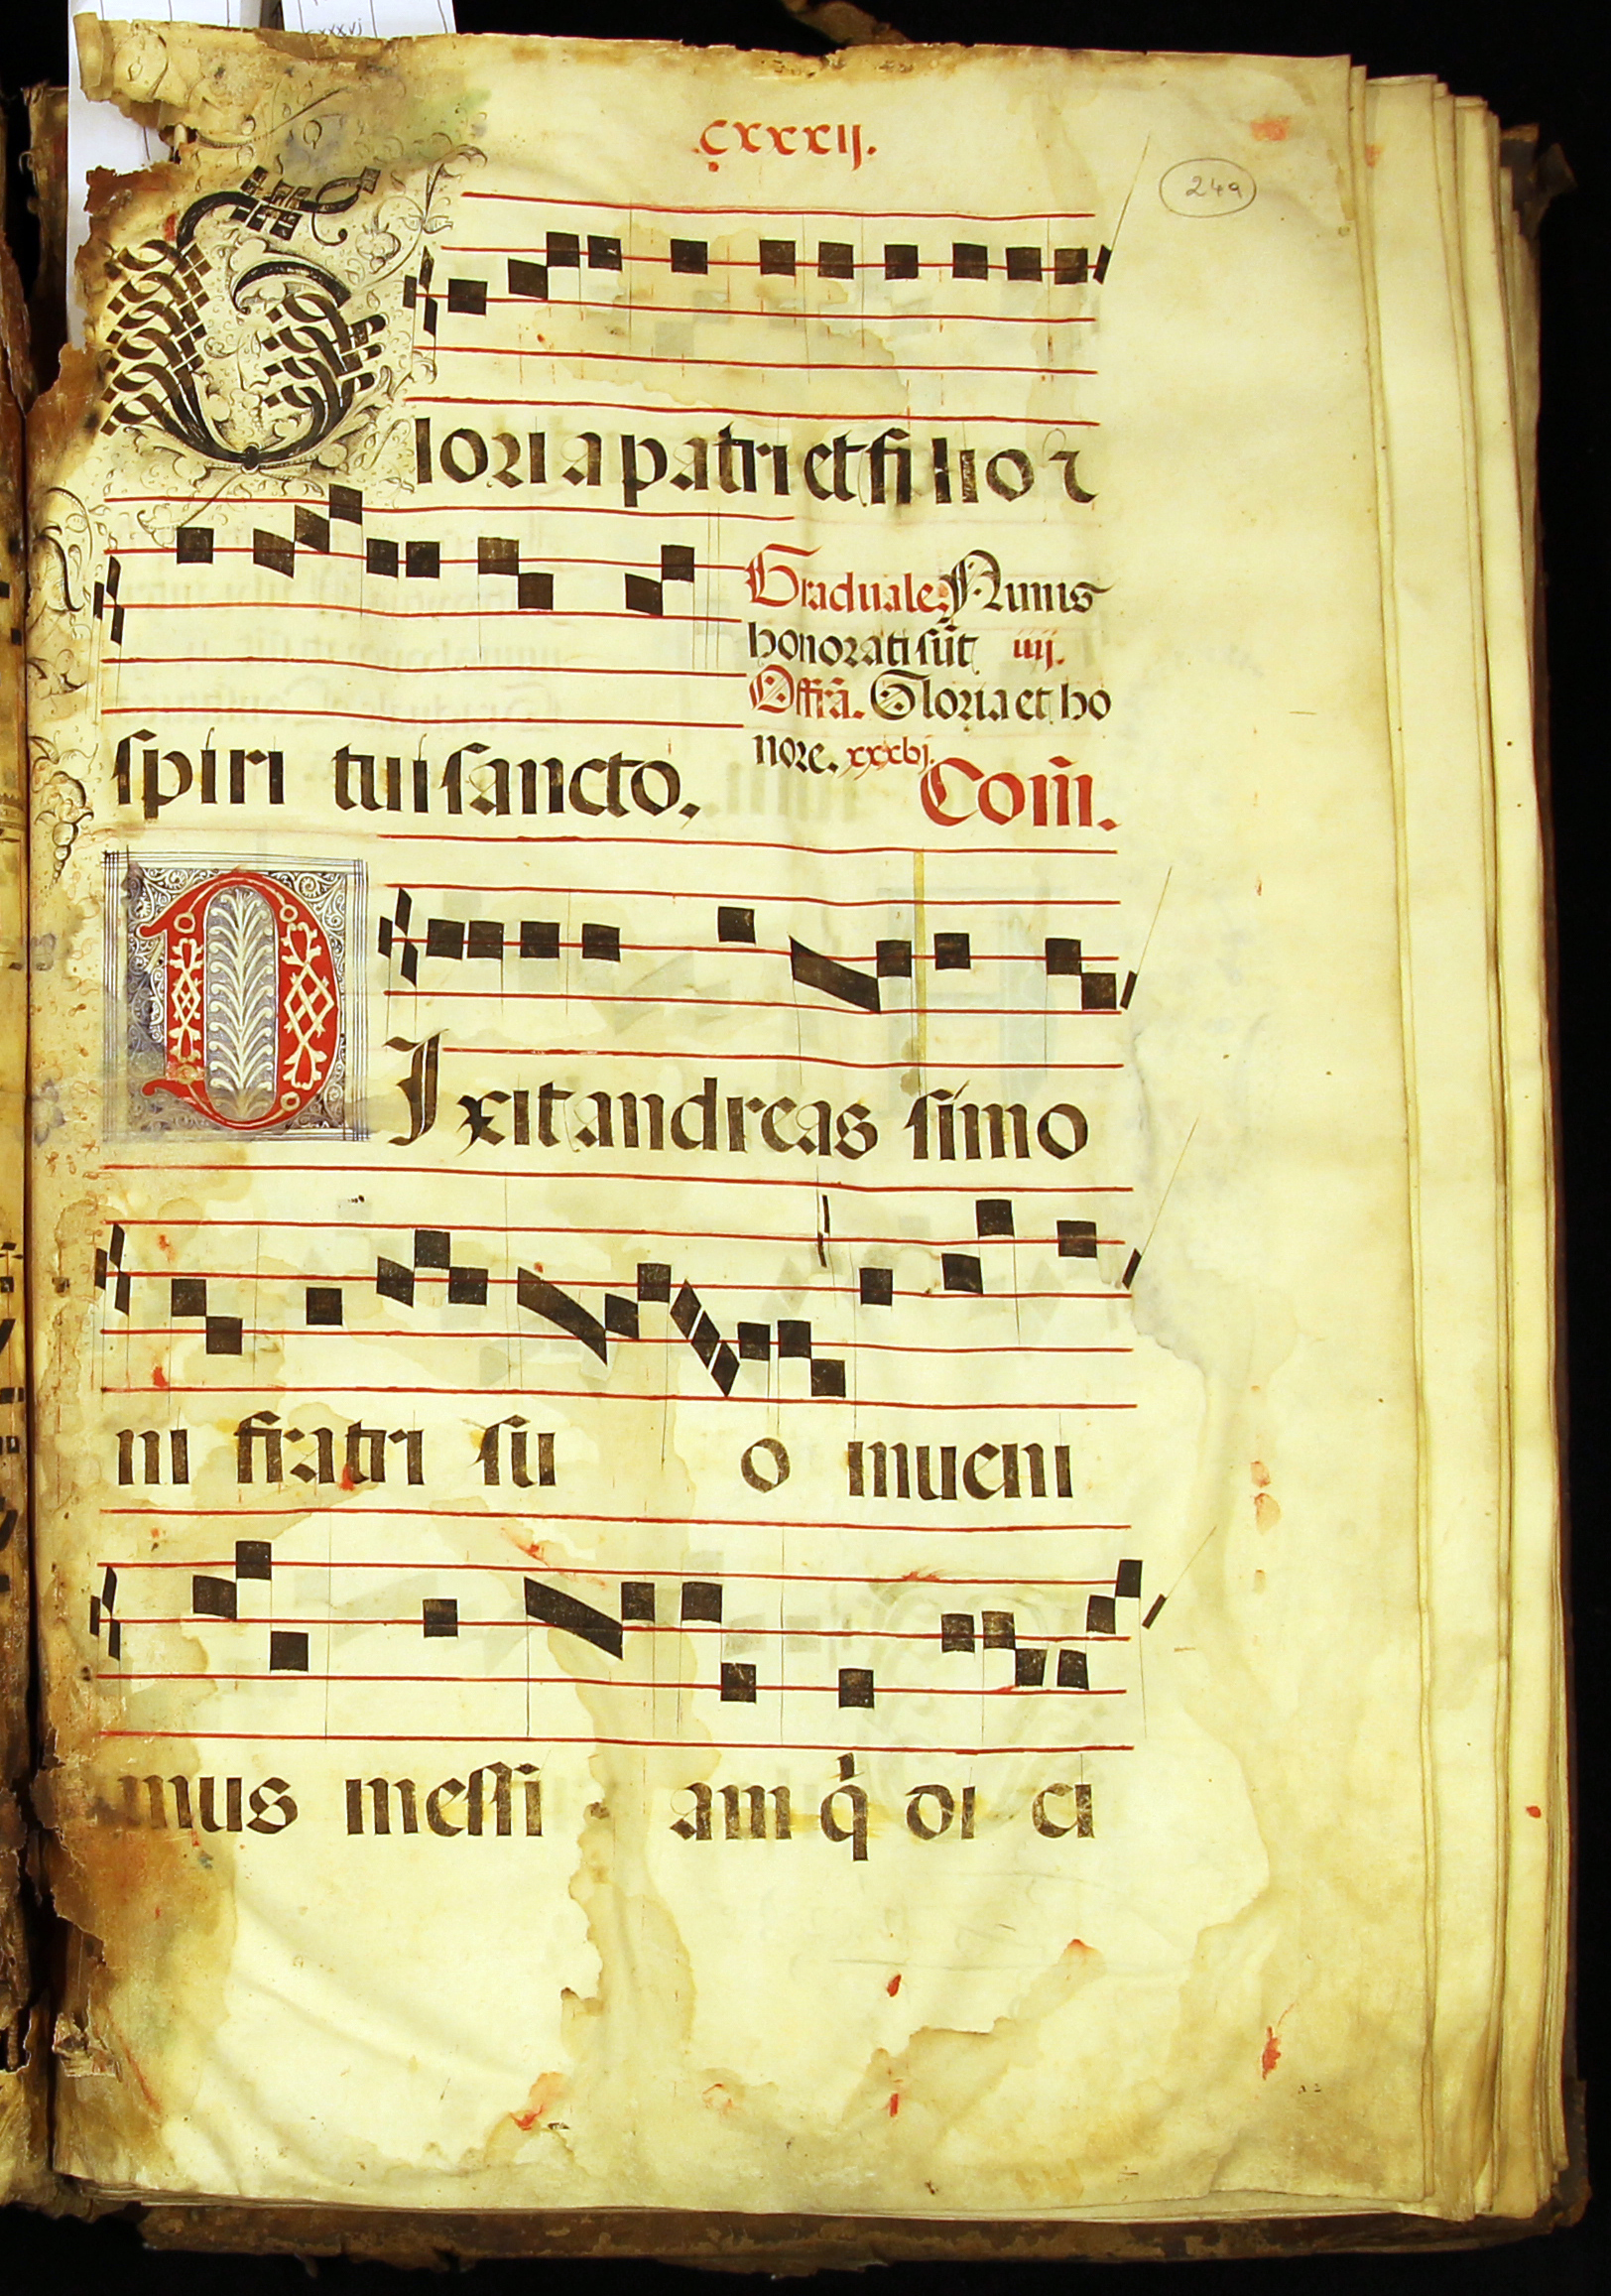 xxxvj
cxxxij.
249
Gloria patri et filio ⁊
Graduale. Nimis
honorati sūt iiij.
Offrā. Gloria et ho
nore. xxxvj.
spiri tui sancto.
Com̄.
DIxit andreas simo
ni fratri su o inueni
mus messi am q̇ di ci